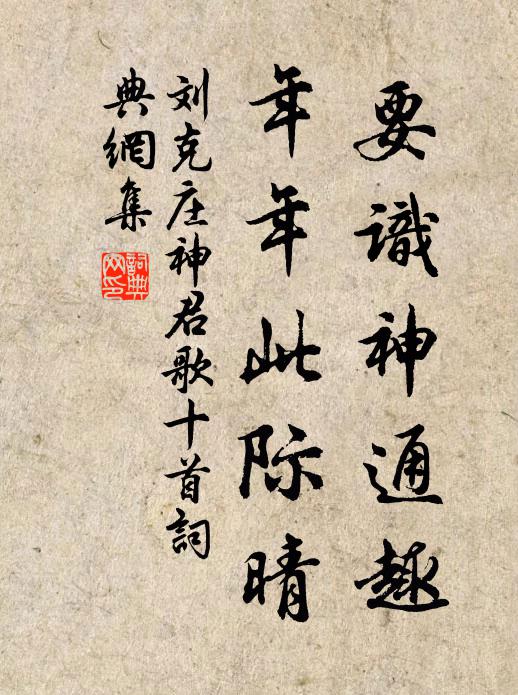 要識神通趣
年年此际晴
刘克庄神君歌十首詞
典網集
詞典网印